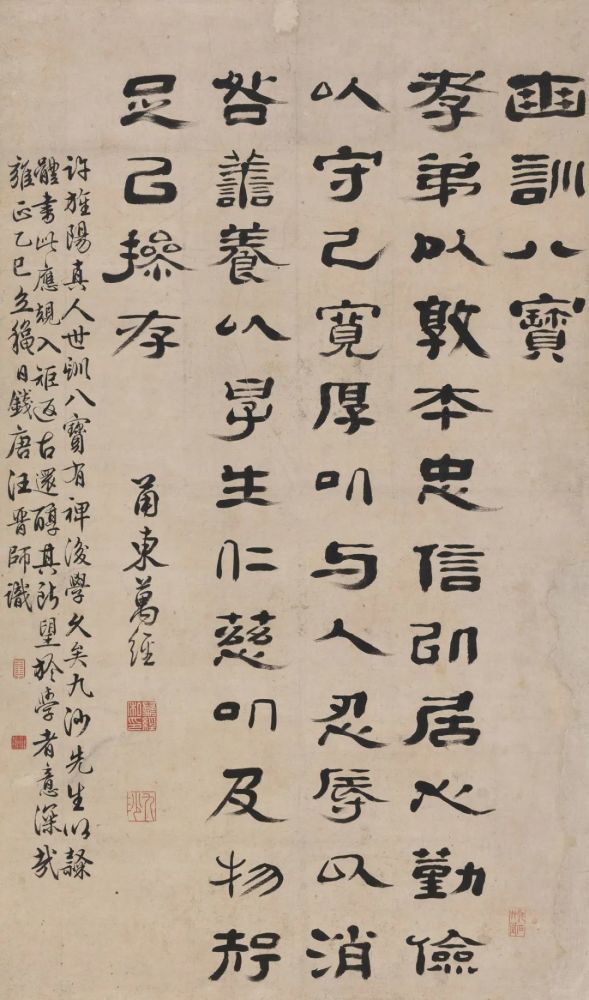 訓八寶
孝弟以敦本忠信以居心勤儉
以守己寬厚以与人忍辱以消
咎譱養以阜生仁慈以及物
足己操存
甬東萬經
許旌陽真人世訓八寶有裨後學久矣九沙先生以隸
體書此應規入矩返古還醇其所望於學者意深哉
雍正乙巳立穐日錢唐汪晉師識